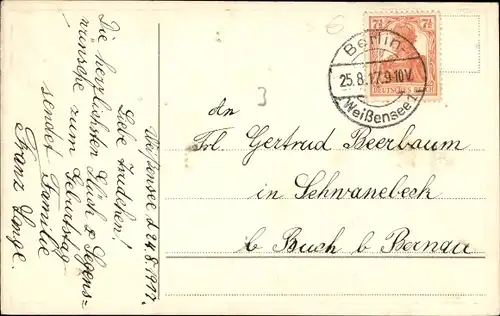 Weißensee d. 24.8.1917.
Liebe Trudchen!
Die herzlichsten Glück- & Segens-
wünsche zum Geburtstag
sendet Familie
Franz Lange.
7½ 7½
DEUTSCHES REICH
Berlin-
25.8.17.9-10V.
(Weißensee)
3
An
Frl. Gertrud Beerbaum
in Schwanebeck
b Buch b Bernau